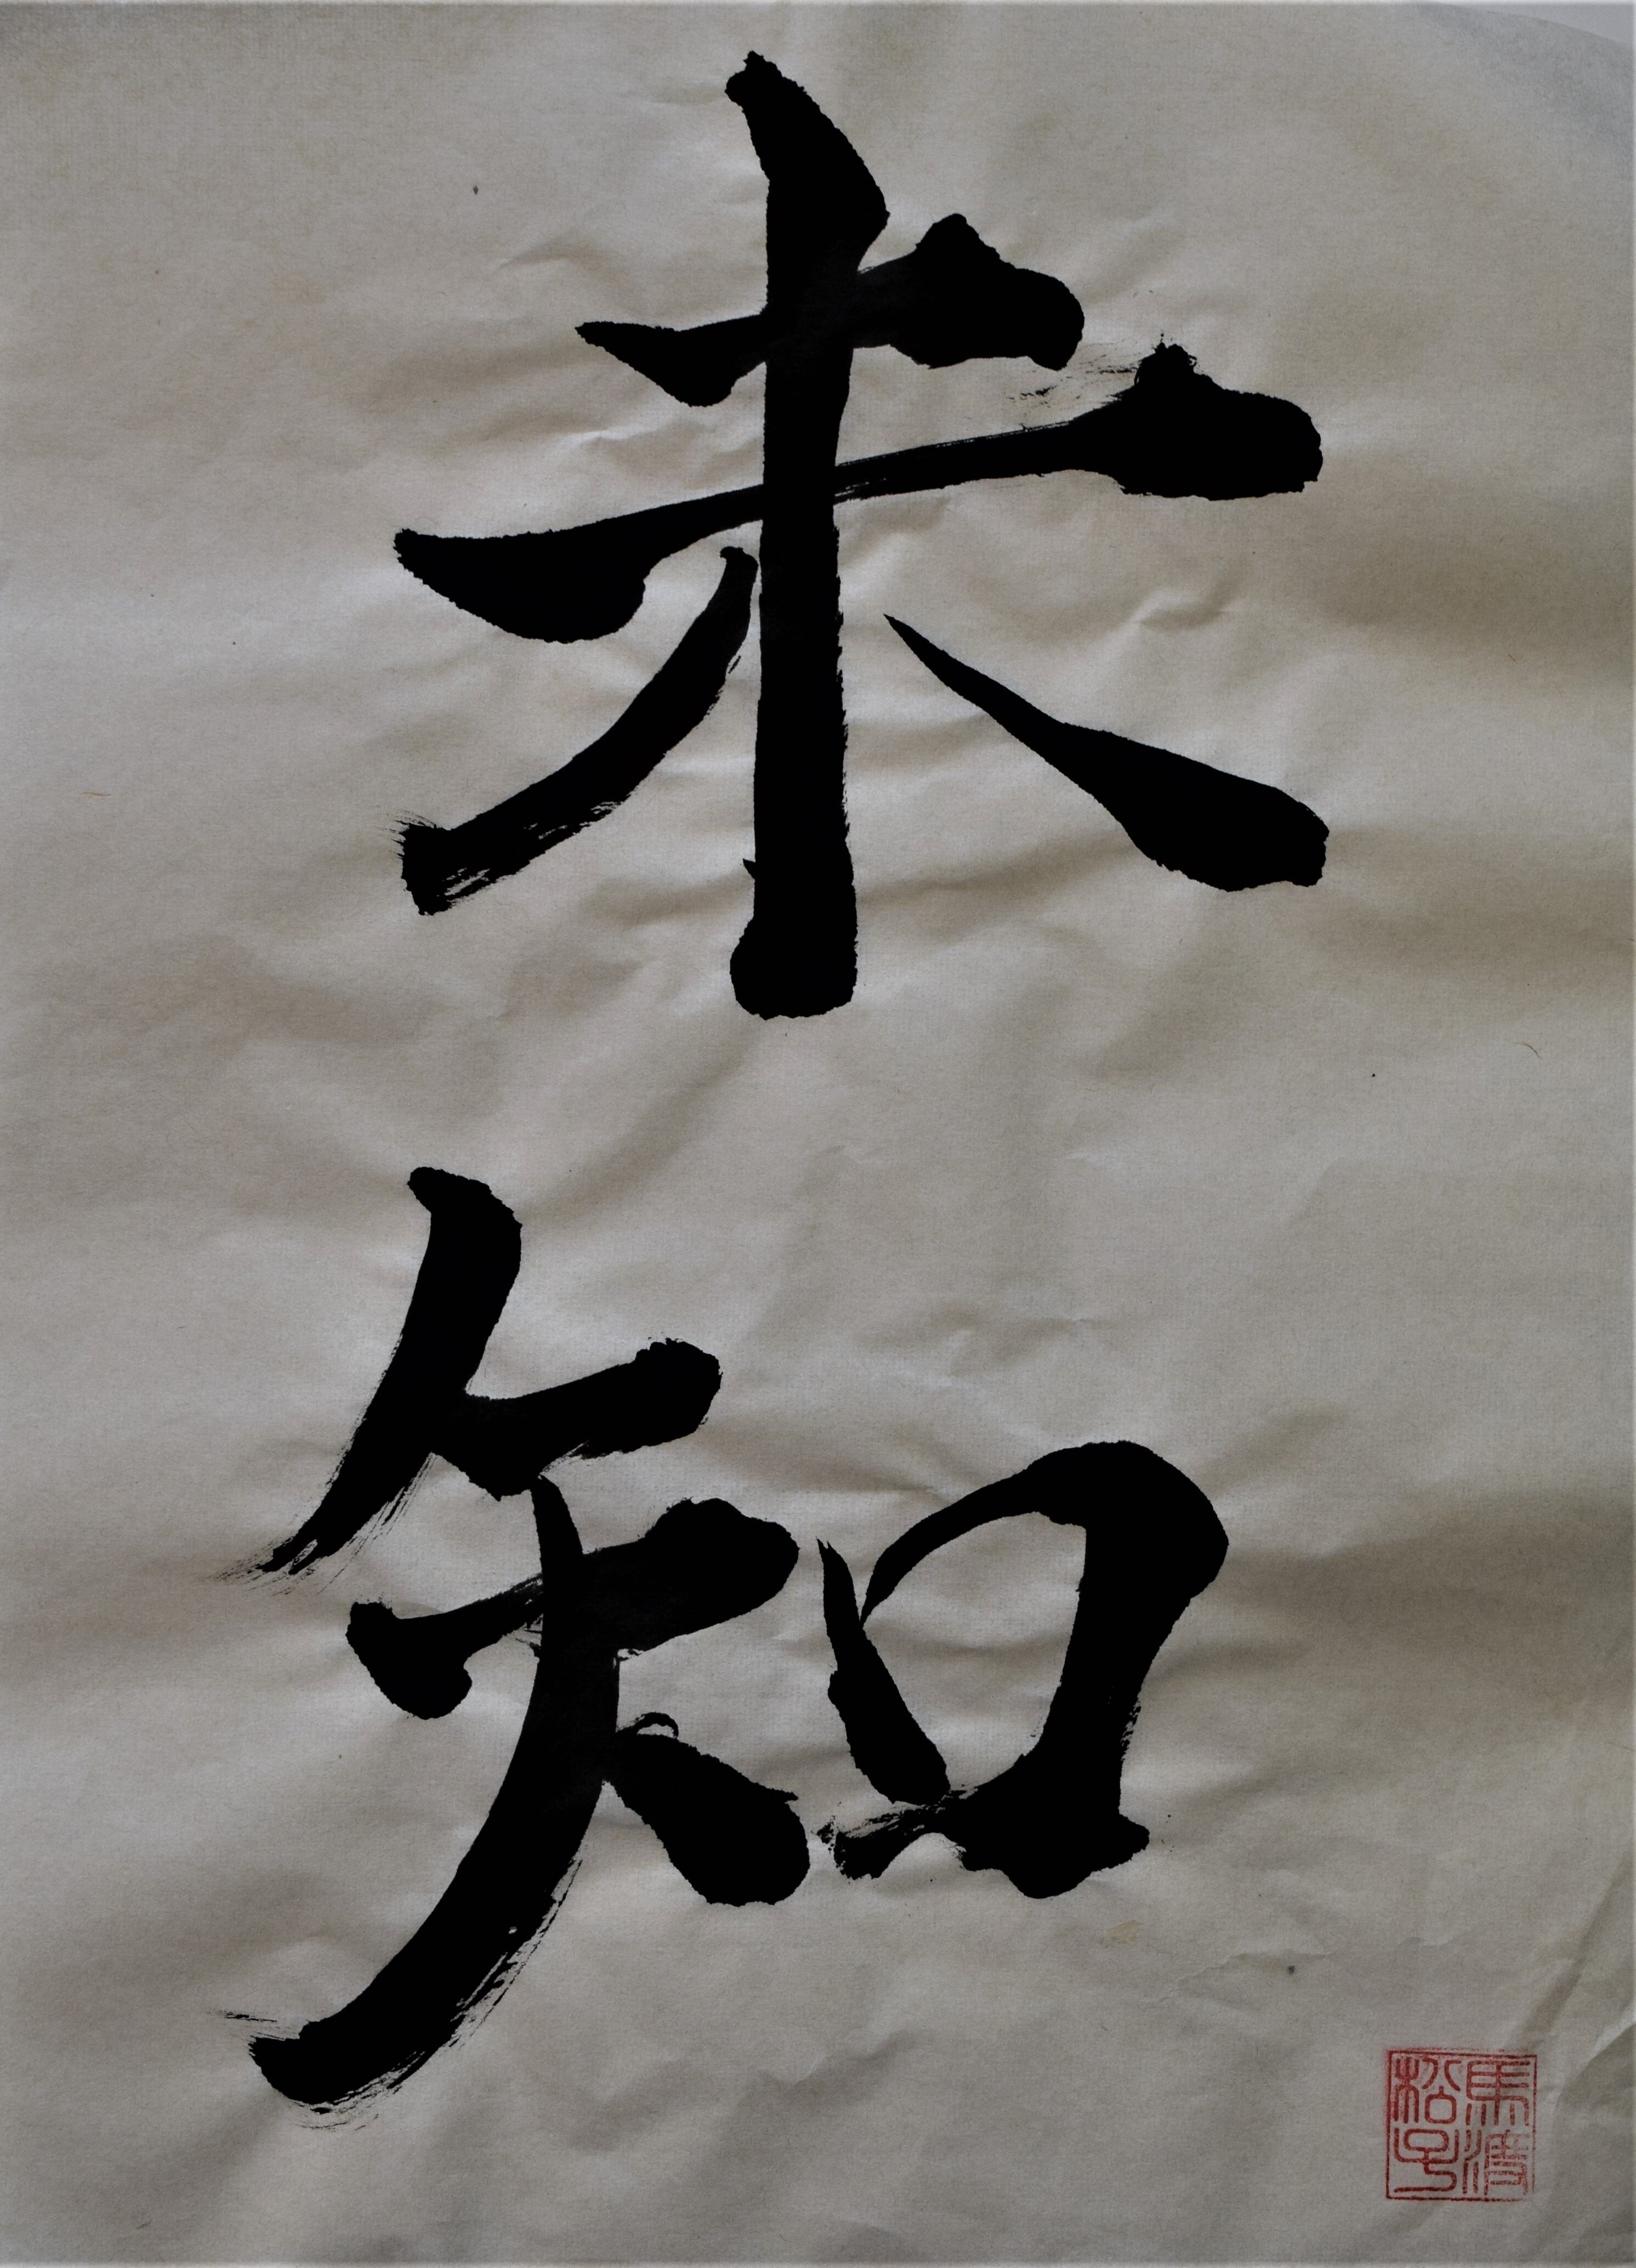 未知
馬渡
松子